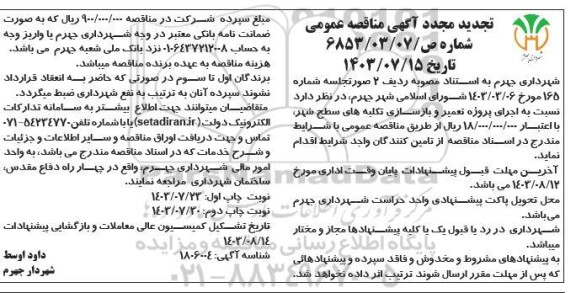 تجدید مجدد آگهی مناقصه عمومی
شماره ص/۶۸۵۳/۰۳/۰۷
تاریخ ۱۴۰۳/۰۷/۱۵
شهرداری جهرم به استناد مصوبه ردیف ۲ صورتجلسه شماره
۱۶۵ مورخ ۱۴۰۳/۰۳/۰۶ شورای اسلامی شهر جهرم، در نظر دارد
نسبت به اجرای پروژه تعمیر و بازسازی تکیه های سطح شهر،
با اعتبار ۱۸/۰۰۰/۰۰۰/۰۰۰ ریال از طریق مناقصه عمومی با شرایط
مندرج در اسناد مناقصه از تامین کنندگان واجد شرایط اقدام
نماید.
آخرین مهلت قبول پیشنهادات پایان وقت اداری مورخ
۱۴۰۳/۰۸/۱۲ می باشد.
محل تحویل پاکت پیشنهادی واحد حراست شهرداری جهرم
می‌باشد.
شهرداری در رد یا قبول یک یا کلیه پیشنهادها مجاز و مختار
میباشد.
به پیشنهادهای مشروط و مخدوش و فاقد سپرده و پیشنهادهائی
که پس از مهلت مقرر ارسال شوند ترتیب اثر داده نخواهد شد.
مبلغ سپرده شرکت در مناقصه ۹۰۰/۰۰۰/۰۰۰ ریال که به صورت
ضمانت نامه بانکی معتبر در وجه شهرداری جهرم یا واریز وجه
به حساب ۰۱۰۶۴۳۷۲۱۲۰۰۸ نزد بانک ملی شعبه جهرم می باشد.
هزینه مناقصه به عهده برنده مناقصه میباشد.
برندگان اول تا سوم در صورتی که حاضر به انعقاد قرارداد
نشوند سپرده آنان به ترتیب به نفع شهرداری ضبط میگردد.
متقاضیان میتوانند جهت اطلاع بیشتر به سامانه تدارکات
الکترونیک دولت (setadiran.ir) یا با شماره تلفن ۵۴۲۳۴۷۷۰-۰۷۱
تماس و جهت دریافت اوراق مناقصه و سایر اطلاعات و جزئیات
و شرح خدمات که در اسناد مناقصه مندرج می باشد، به واحد
امور مالی شهرداری جهرم واقع در چهار راه دفاع مقدس،
ساختمان شهرداری مراجعه نمایند.
نوبت چاپ اول: ۱۴۰۳/۰۷/۲۳
نوبت چاپ دوم: ۱۴۰۳/۰۷/۳۰
تاریخ تشکیل کمیسیون عالی معاملات و بازگشایی پیشنهادات
۱۴۰۳/۰۸/۱۴
شناسه آگهی: ۱۸۰۶۰۰۴
داود اوسط
شهردار جهرم